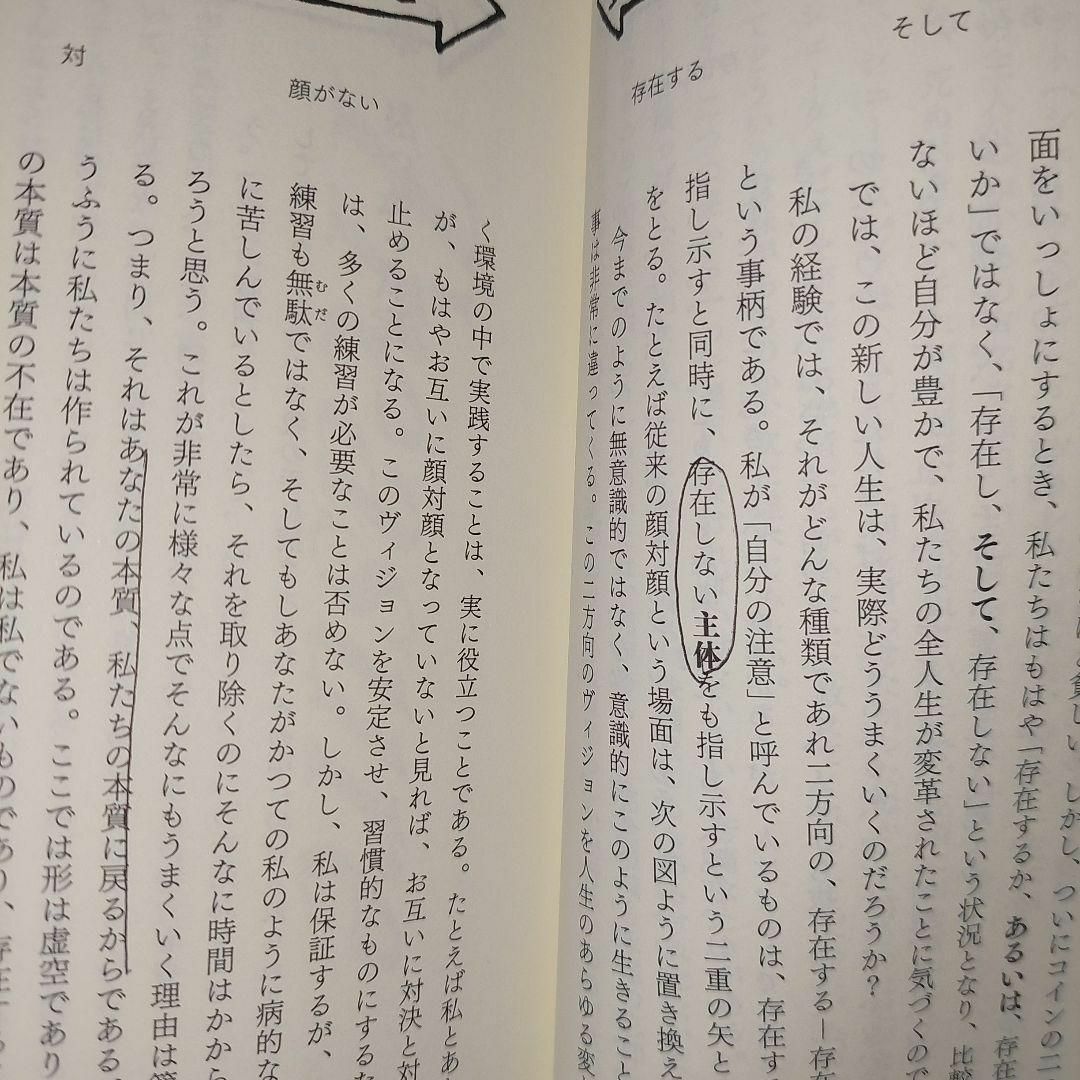 そして
存在する
しい。しかし、ついにコインの二
面をいっしょにするとき、私たちはもはや「存在するか、あるいは、存在
いか」ではなく、「存在し、そして、存在しない」という状況となり、比較
ないほど自分が豊かで、私たちの全人生が変革されたことに気づくので
では、この新しい人生は、実際どううまくいくのだろうか?
私の経験では、それがどんな種類であれ二方向の、存在する―存在
という事柄である。私が「自分の注意」と呼んでいるものは、存在す
指し示すと同時に、存在しない主体をも指し示すという二重の矢と
をとる。たとえば従来の顔対顔という場面は、次の図ように置き換え
今までのように無意識的ではなく、意識的にこのように生きること
事は非常に違ってくる。この二方向のヴィジョンを人生のあらゆる変
対
顔がない
く環境の中で実践することは、実に役立つことである。たとえば私とあ
が、もはやお互いに顔対顔となっていないと見れば、お互いに対決と対
止めることになる。このヴィジョンを安定させ、習慣的なものにするた
は、多くの練習が必要なことは否めない。しかし、私は保証するが、
練習も無駄ではなく、そしてもしあなたがかつての私のように病的な
むだ
に苦しんでいるとしたら、それを取り除くのにそんなに時間はかから
ろうと思う。これが非常に様々な点でそんなにもうまくいく理由は
る。つまり、それはあなたの本質、私たちの本質に戻るからである。
うふうに私たちは作られているのである。ここでは形は虚空であり
の本質は本質の不在であり、私は私でないものであり、存在する